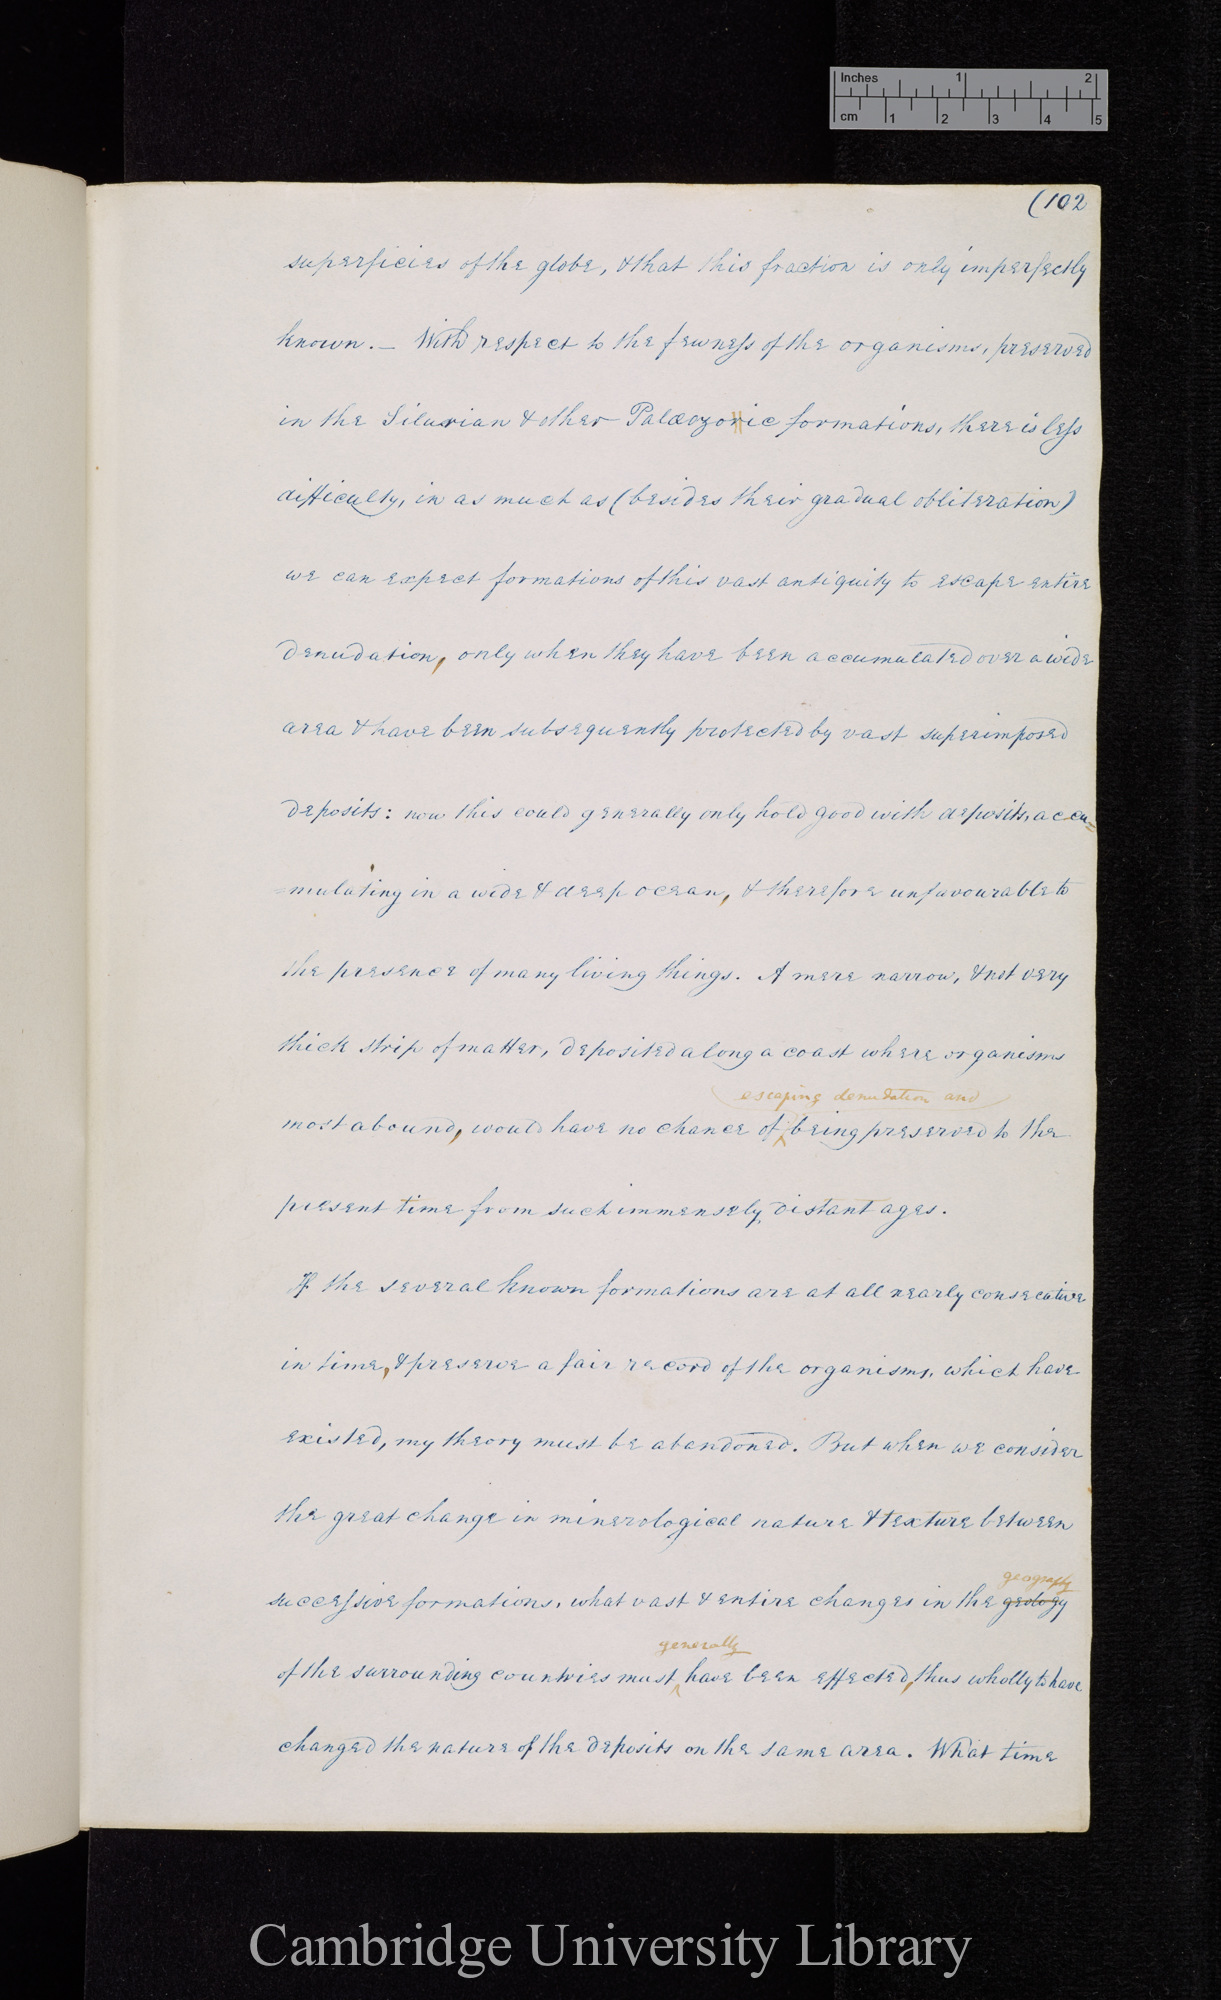 Inches 1 2
cm 1 2 3 4 5
(102
superficies of the globe, & that this fraction is only imperfectly
known. — With respect to the fewness of the organisms, preserved
in the Silurian & other Palæozoric formations, there is less
difficulty, in as much as (besides their gradual obliteration)
we can expect formations of this vast antiquity to escape entire
denudation, only when they have been accumulated over a wide
area & have been subsequently protected by vast superimposed
deposits: now this could generally only hold good with deposits, accu=
=mulating in a wide & deep ocean, & therefore unfavourable to
the presence of many living things. A mere narrow, & not very
thick strip of matter, deposited along a coast where organisms
escaping denudation and
most abound, would have no chance of being preserved to the
present time from such immensely, distant ages.
If the several known formations are at all nearly consecutive
in time, & preserve a fair record of the organisms, which have
existed, my theory must be abandoned. But when we consider
the great change in minerological nature & texture between
geography
successive formations, what vast & entire changes in the geology
generally
of the surrounding countries must have been effected, thus wholly to have
changed the nature of the deposits on the same area. What time
Cambridge University Library